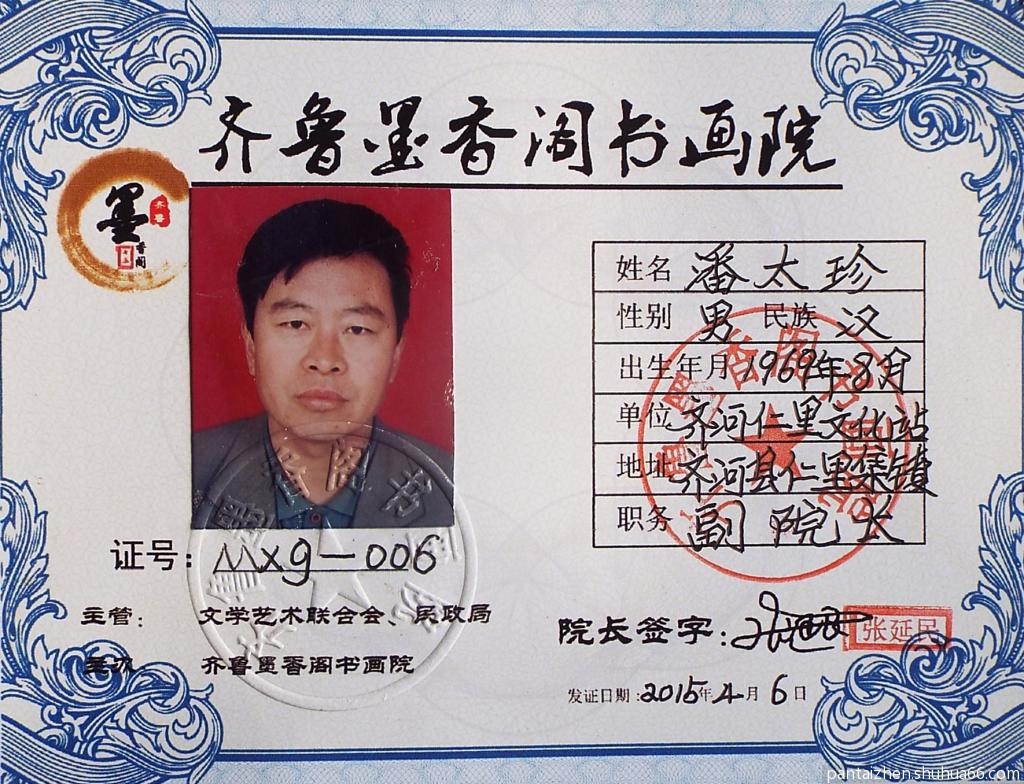 齐鲁墨香阁书画院
墨
齐鲁
香阁
姓名 潘太珍
性别 男 民族 汉
出生年月 1969年8月
单位 齐河仁里文化站
地址 齐河县仁里集镇
职务 副院长
证号：MXg—006
主管： 文学艺术联合会、民政局
主办 齐鲁墨香阁书画院
院长签字： 张延民
发证日期：2015年4月6日
pantaizhen.shuhua60.com